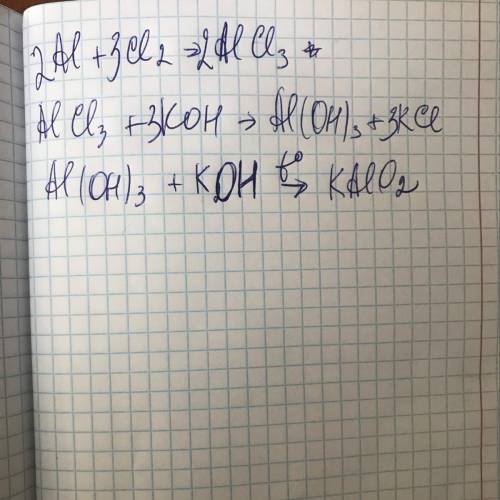 2Al + 3Cl2 → 2AlCl3
AlCl3 + 3KOH → Al(OH)3 + 3KCl
Al(OH)3 + KOH t° → KAlO2